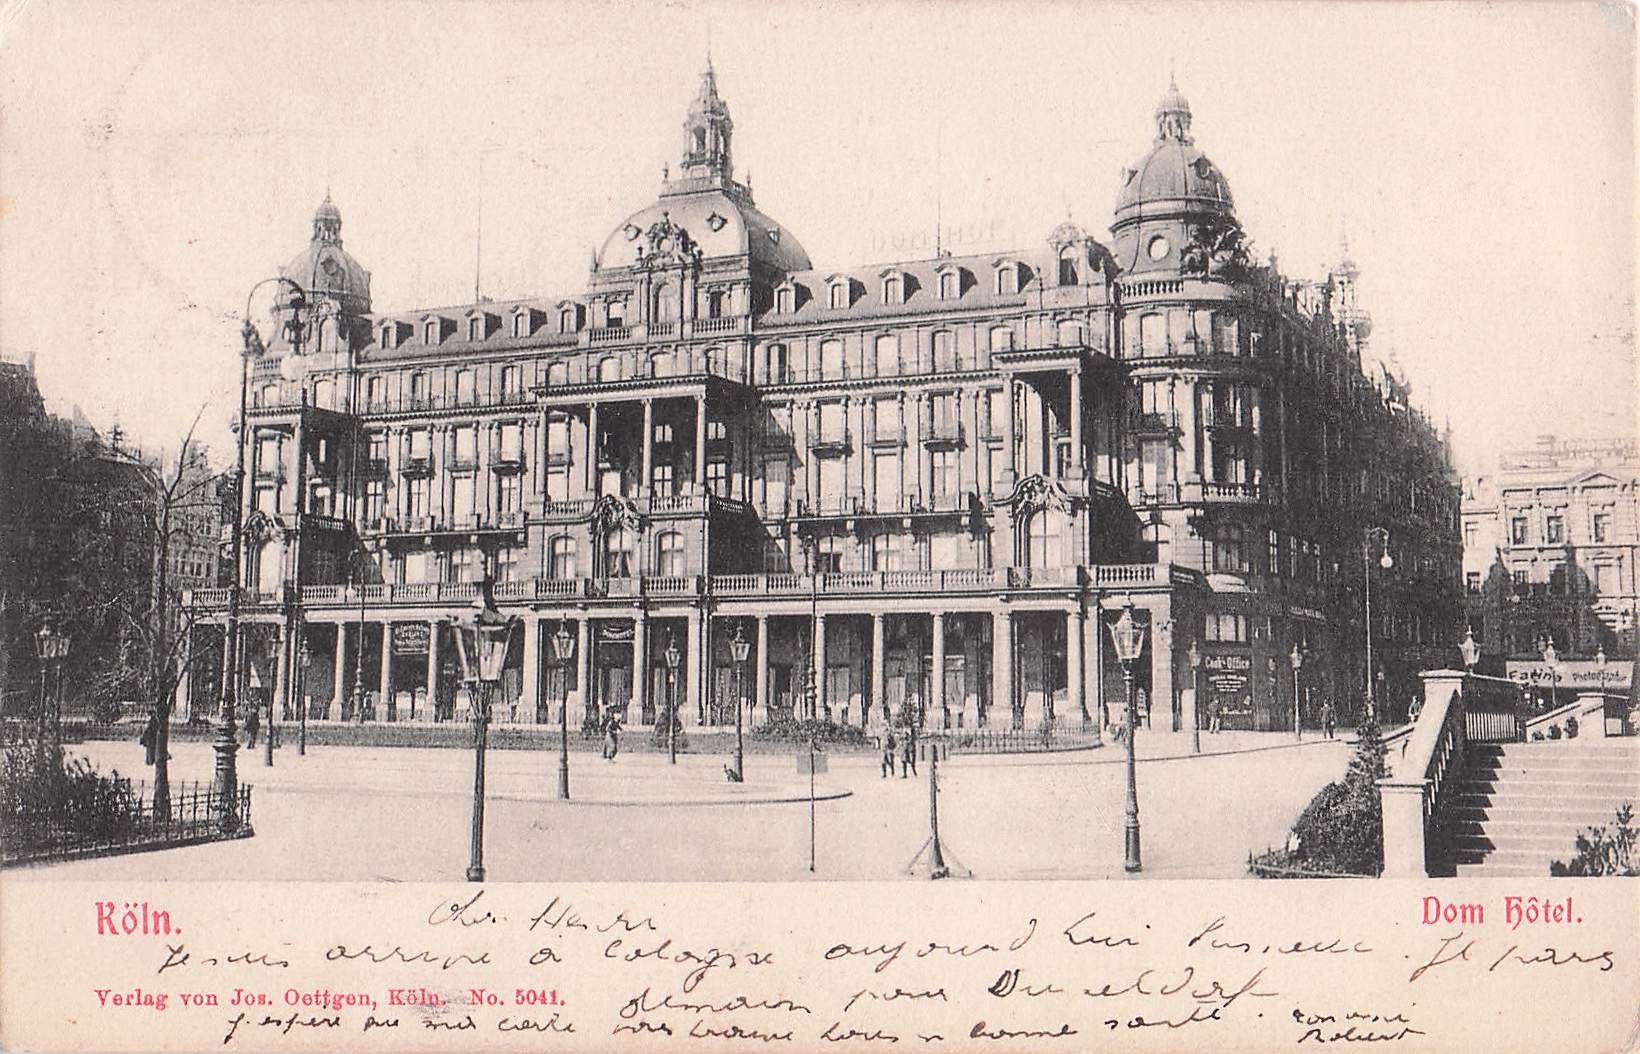 Cook's Office
Photographie
Köln.
Dom Hôtel.
Cher Henri
Je suis arrive à Cologne aujourd hui . Je pars
Verlag von Jos. Oettgen, Köln. No. 5041.
demain pour Dusseldorf
J'espere que ma carte vous trouve tous en bonne santé. ton ami
Robert